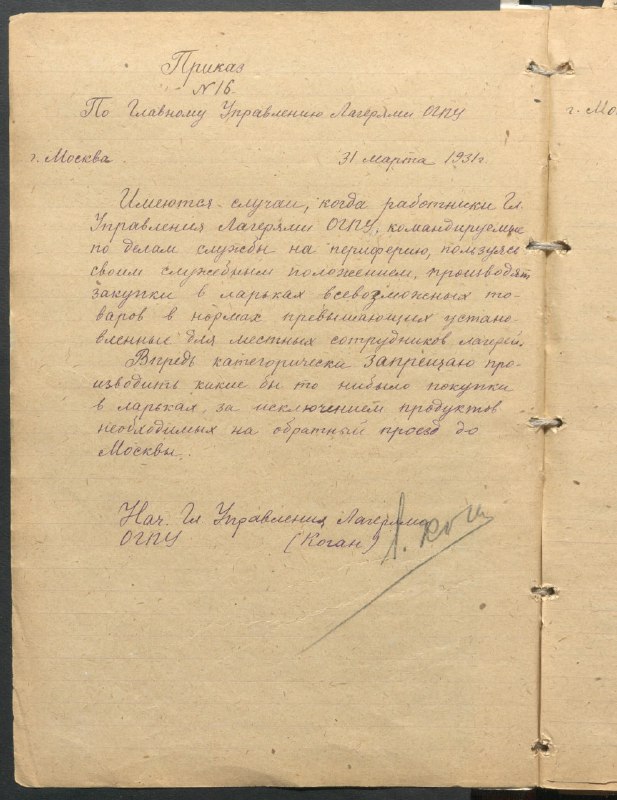 Приказ
№16.
По Главному Управлению Лагерями ОГПУ
г. Москва.
31 марта 1931г
Имеются случаи, когда работники Гл.
Управления Лагерями ОГПУ, командируемые
по делам службы на периферию, пользуясь
своим служебным положением, производят
закупки в ларьках всевозможных то-
варов в нормах превышающих устано-
вленные для местных сотрудников лагерей.
Впредь категорически запрещаю про-
изводить какие бы то нибыло покупки
в ларьках, за исключением продуктов
необходимых на обратный проезд до
Москвы.
Нач. Гл. Управления Лагерями
ОГПУ (Коган)
г. Мо